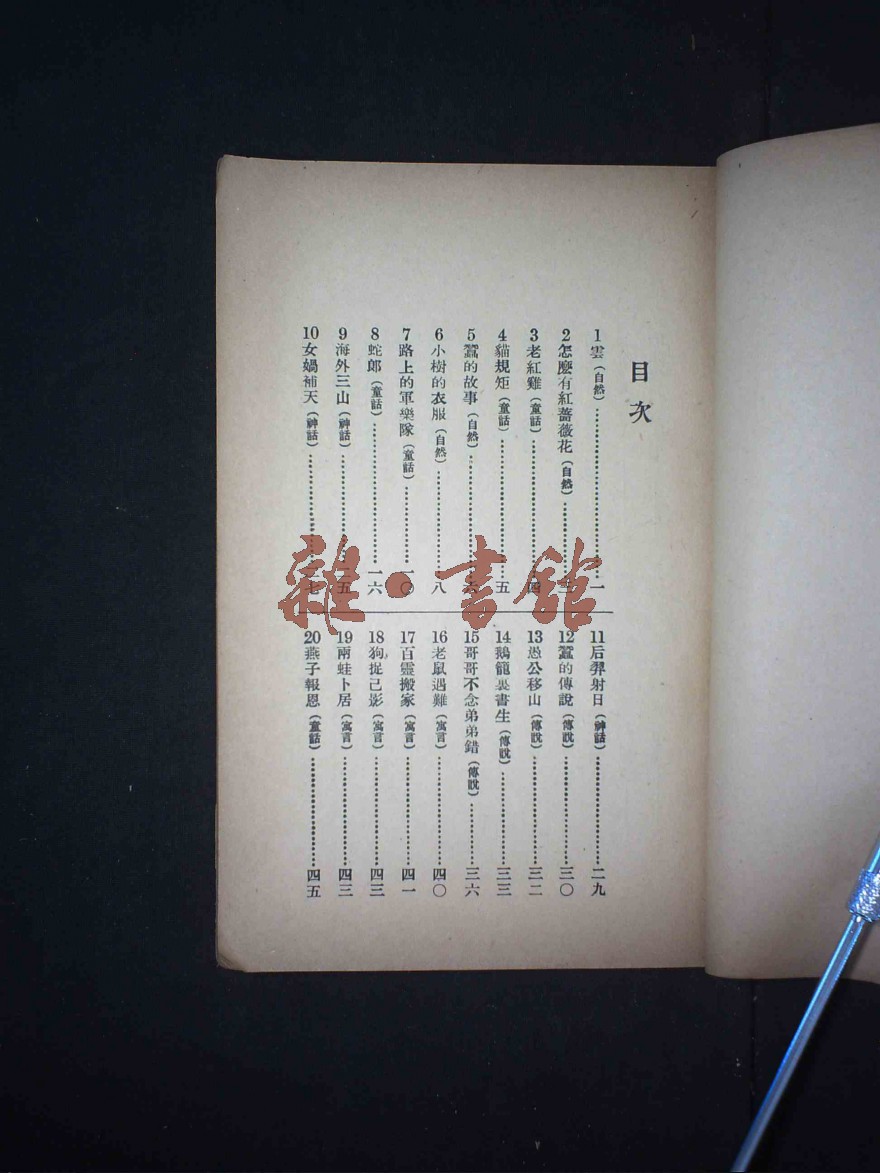 目次
1 雲（自然）……一
2 怎麽有紅薔薇花（自然）……
3 老紅雞（童話）……四
4 貓規矩（童話）……五
5 蠶的故事（自然）……六
6 小樹的衣服（自然）……八
7 路上的軍樂隊（童話）……一〇
8 蛇郎（童話）……一六
9 海外三山（神話）……五
10 女媧補天（神話）……七
11 后羿射日（神話）……二九
12 蠶的傳說（傳說）……三〇
13 愚公移山（傳說）……三二
14 鵝籠裏書生（傳說）……三三
15 哥哥不念弟弟錯（傳說）……三六
16 老鼠遇難（寓言）……四〇
17 百靈搬家（寓言）……四一
18 狗捉己影（寓言）……四三
19 兩蛙卜居（寓言）……四三
20 燕子報恩（童話）……四五
雜·書館